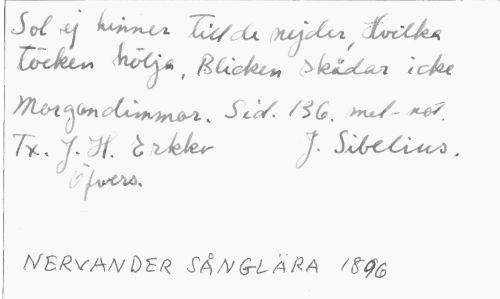 Sol ej hinner till de nejder, Hvilka
töcken hölja, Blicken skådar icke
Morgondimmor. Sid. 136. mel-not.
Tx. J. H. Erkko J. Sibelius.
Öfvers.
NERVANDER SÅNGLÄRA 1896